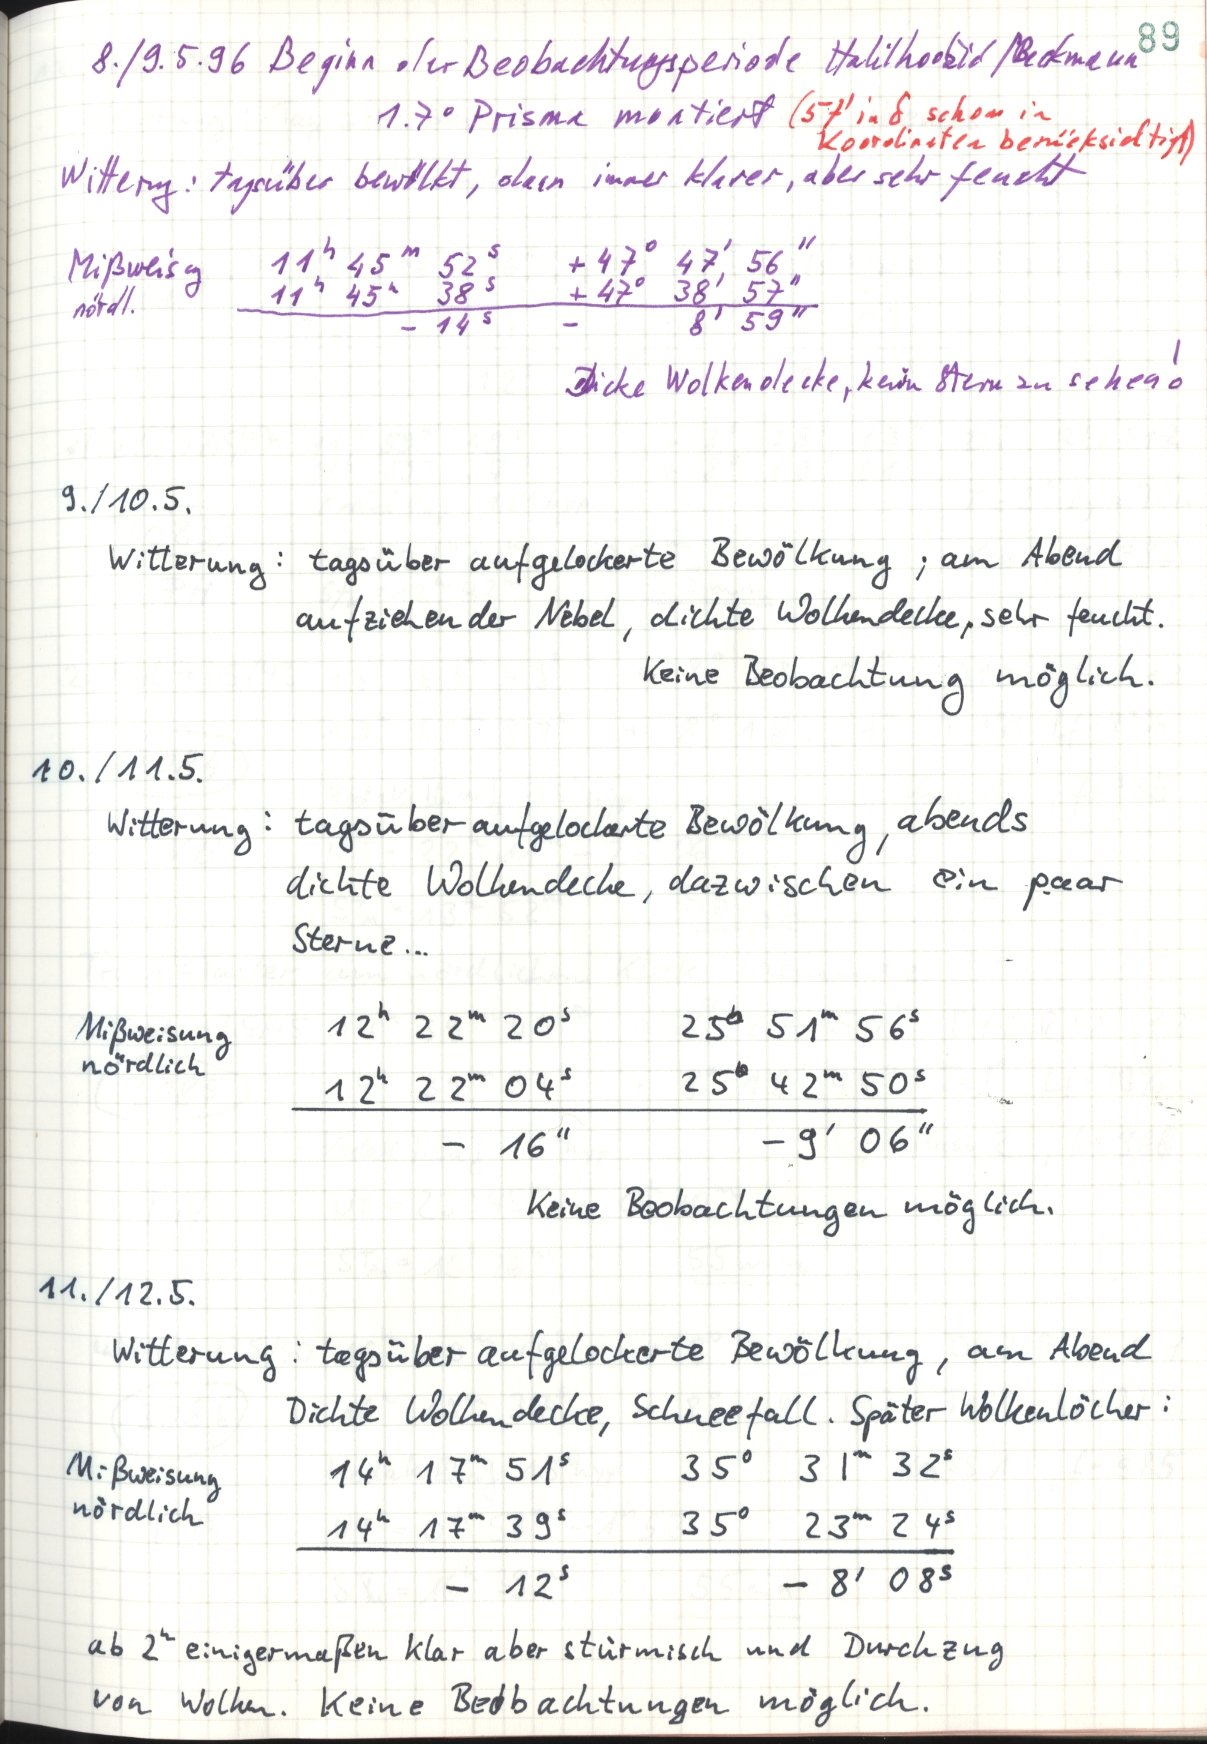 89
8./9.5.96 Beginn der Beobachtungsperiode /Beckmann
1.7° Prisma montiert (57' in δ schon in
Koordinaten berücksichtigt)
Witterung: tagsüber bewölkt, dann immer klarer, aber sehr feucht
Mißweisg 11ʰ 45ᵐ 52ˢ +47° 47' 56"
nördl. 11ʰ 45ᵐ 38ˢ +47° 38' 57"
- 14ˢ - 8' 59"
Dicke Wolkendecke, kein Stern zu sehen!
9./10.5.
Witterung: tagsüber aufgelockerte Bewölkung; am Abend
aufziehender Nebel, dichte Wolkendecke, sehr feucht.
Keine Beobachtung möglich.
10./11.5.
Witterung: tagsüber aufgelockerte Bewölkung, abends
dichte Wolkendecke, dazwischen ein paar
Sterne...
Mißweisung 12ʰ 22ᵐ 20ˢ 25° 51ᵐ 56ˢ
nördlich 12ʰ 22ᵐ 04ˢ 25° 42ᵐ 50ˢ
- 16" - 9' 06"
Keine Beobachtungen möglich.
11./12.5.
Witterung: tagsüber aufgelockerte Bewölkung, am Abend
Dichte Wolkendecke, Schneefall. Später Wolkenlöcher:
Mißweisung 14ʰ 17ᵐ 51ˢ 35° 31ᵐ 32ˢ
nördlich 14ʰ 17ᵐ 39ˢ 35° 23ᵐ 24ˢ
- 12ˢ - 8' 08ˢ
ab 2ʰ einigermaßen klar aber stürmisch und Durchzug
von Wolken. Keine Beobachtungen möglich.